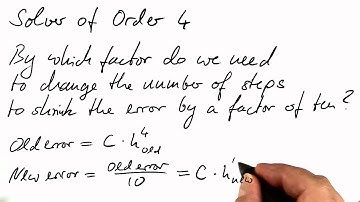 Solver of Order 4
By which factor do we need
to change the number of steps
to shrink the error by a factor of ten?
Old error = C · h⁴old
New error = old error/10 = C · h'new